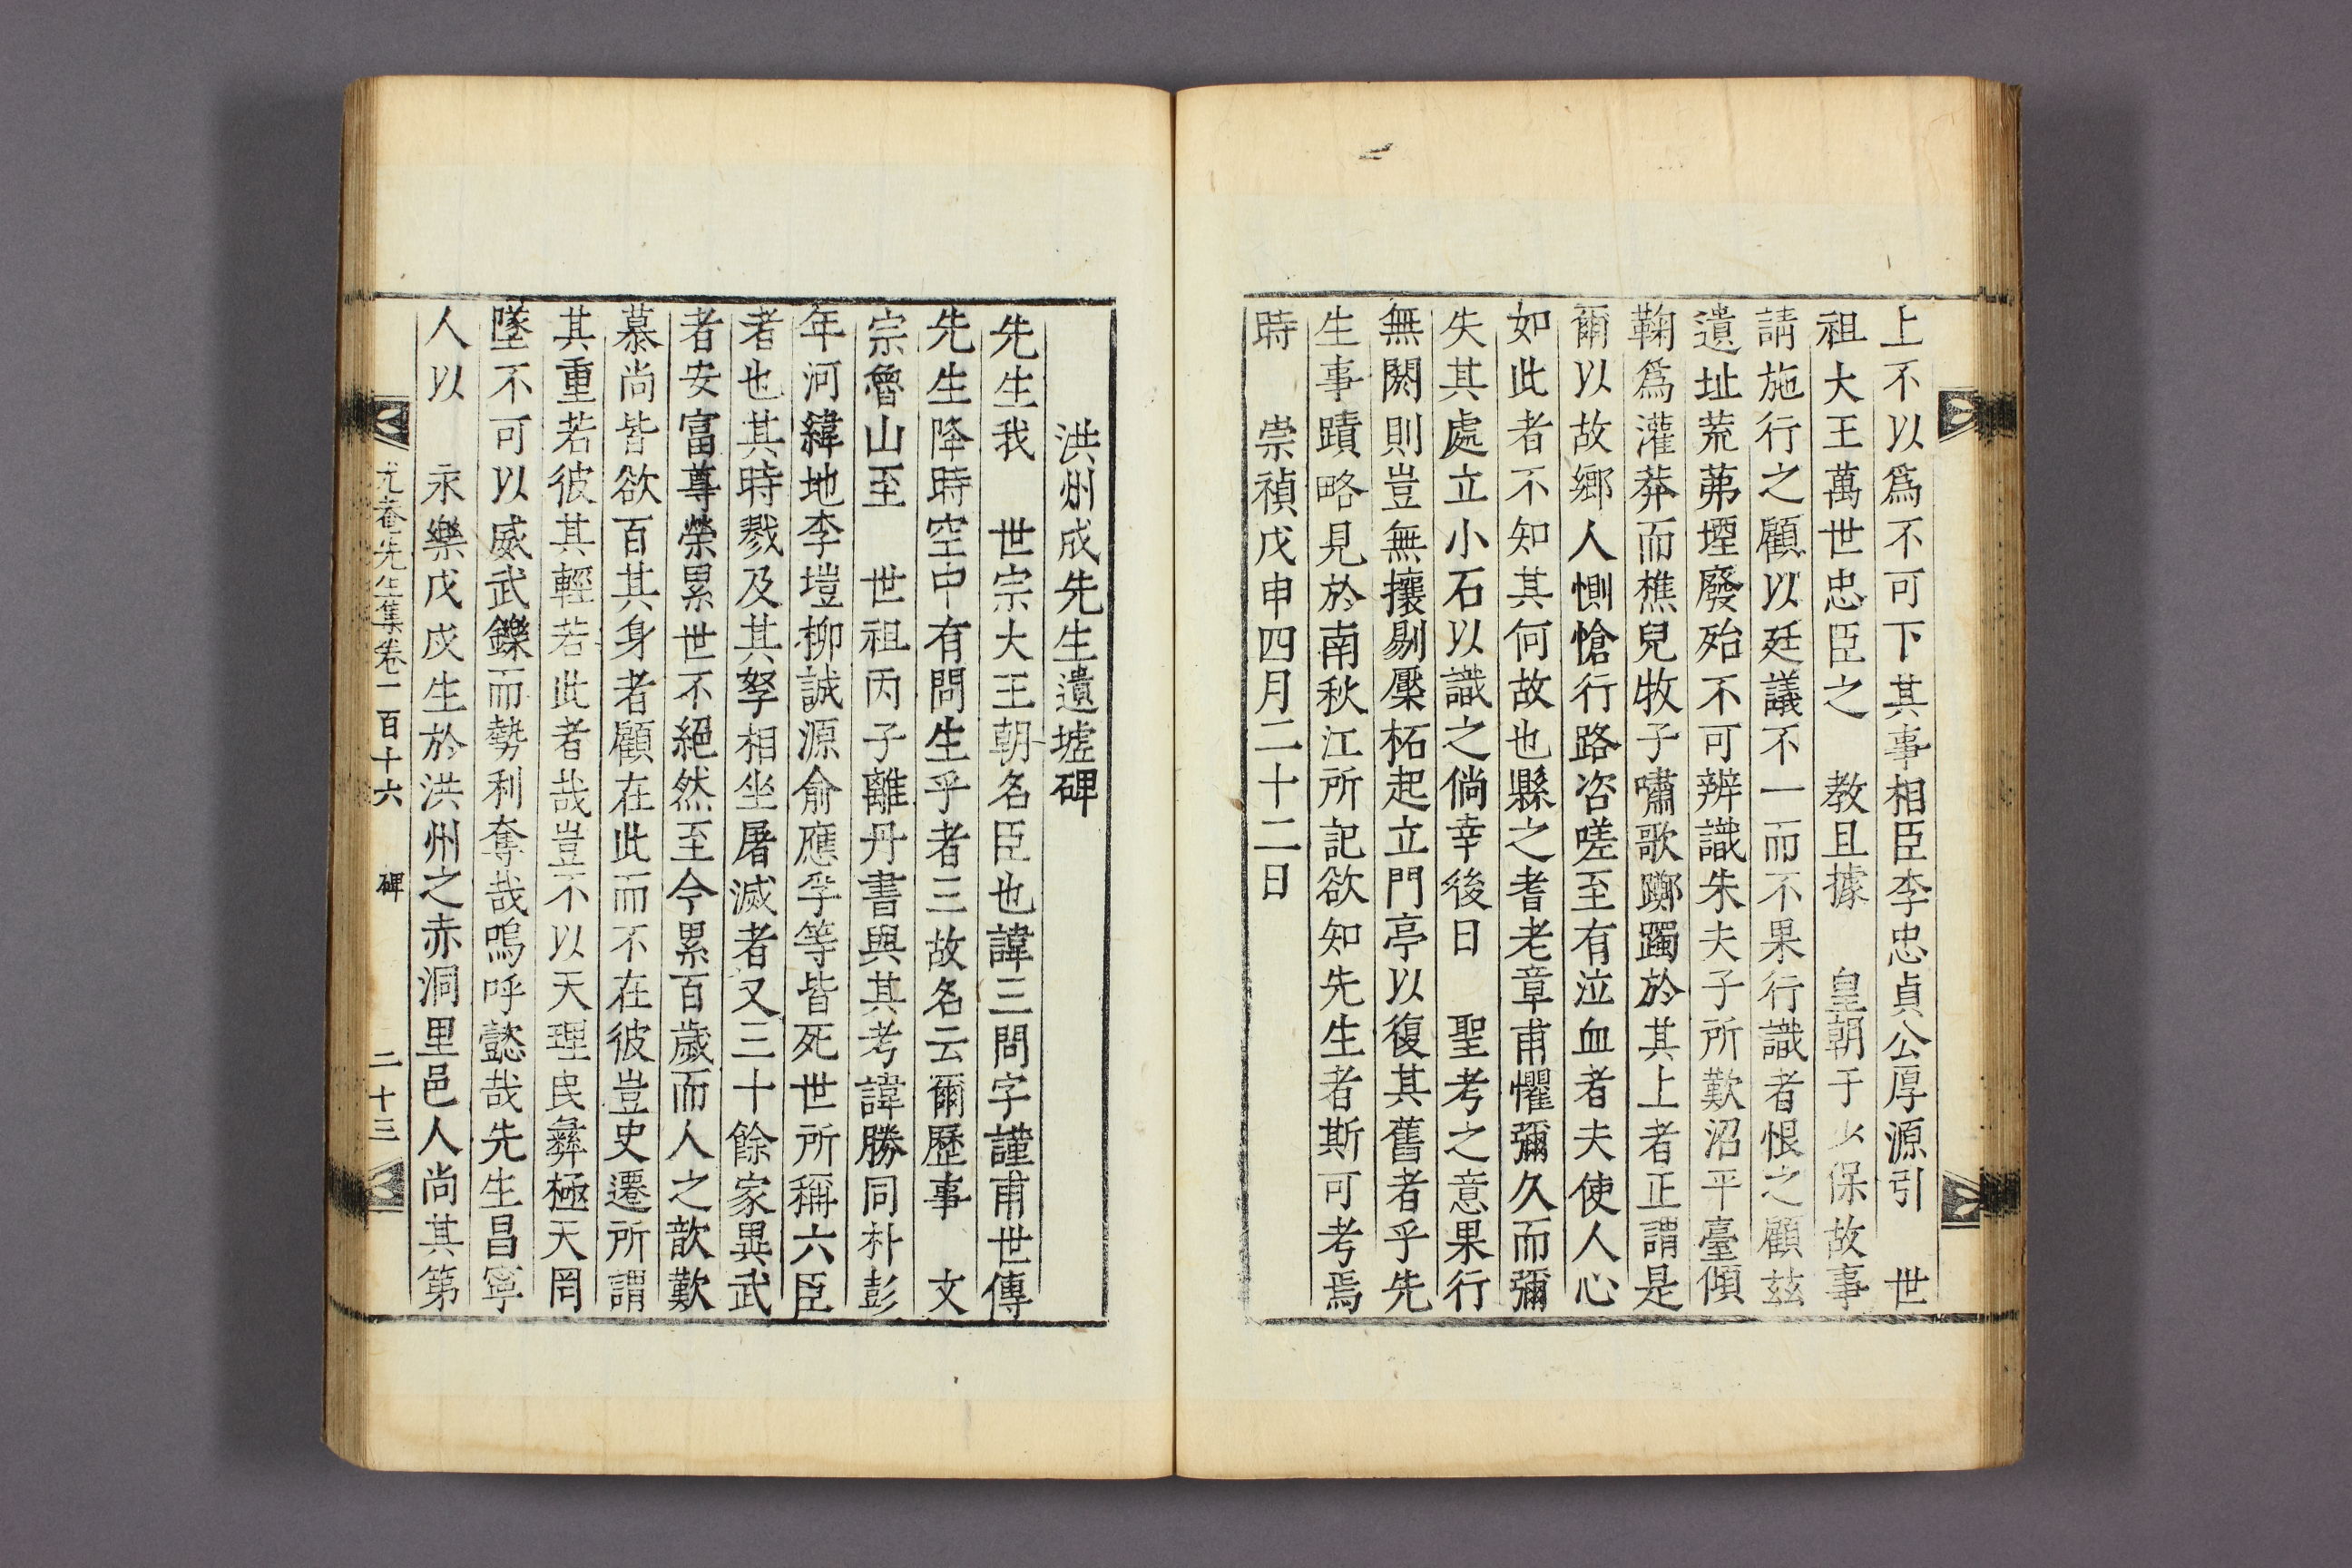 上不以爲不可下其事相臣李忠貞公厚源引　世
祖大王萬世忠臣之　教且據　皇朝于少保故事
請施行之顧以廷議不一而不果行識者恨之顧玆
遺址荒茀堙廢殆不可辨識朱夫子所歎沼平臺傾
鞠爲灌莽而樵兒牧子嘯歌躑躅於其上者正謂是
爾以故鄉人惻愴行路咨嗟至有泣血者夫使人心
如此者不知其何故也縣之耆老章甫懼彌久而彌
失其處立小石以識之倘幸後日　聖考之意果行
無閼則豈無攘剔壓柘起立門亭以復其舊者乎先
生事蹟略見於南秋江所記欲知先生者斯可考焉
時　崇禎戊申四月二十二日
洪州成先生遺墟碑
先生我　世宗大王朝名臣也諱三問字謹甫世傳
先生降時空中有問生乎者三故名云爾歷事　文
宗魯山至　世祖丙子離丹書與其考諱勝同朴彭
年河緯地李塏柳誠源兪應孚等皆死世所稱六臣
者也其時戮及其孥相坐屠滅者又三十餘家異武
者安富尊榮累世不絕然至今累百歲而人之歆歎
慕尚皆欲百其身者顧在此而不在彼豈史遷所謂
其重若彼其輕若此者哉豈不以天理民彝極天罔
墜不可以威武鑠而勢利奪哉嗚呼懿哉先生昌寧
人以　永樂戊戌生於洪州之赤洞里邑人尚其第
尤菴先生集卷一百十六　碑　二十三